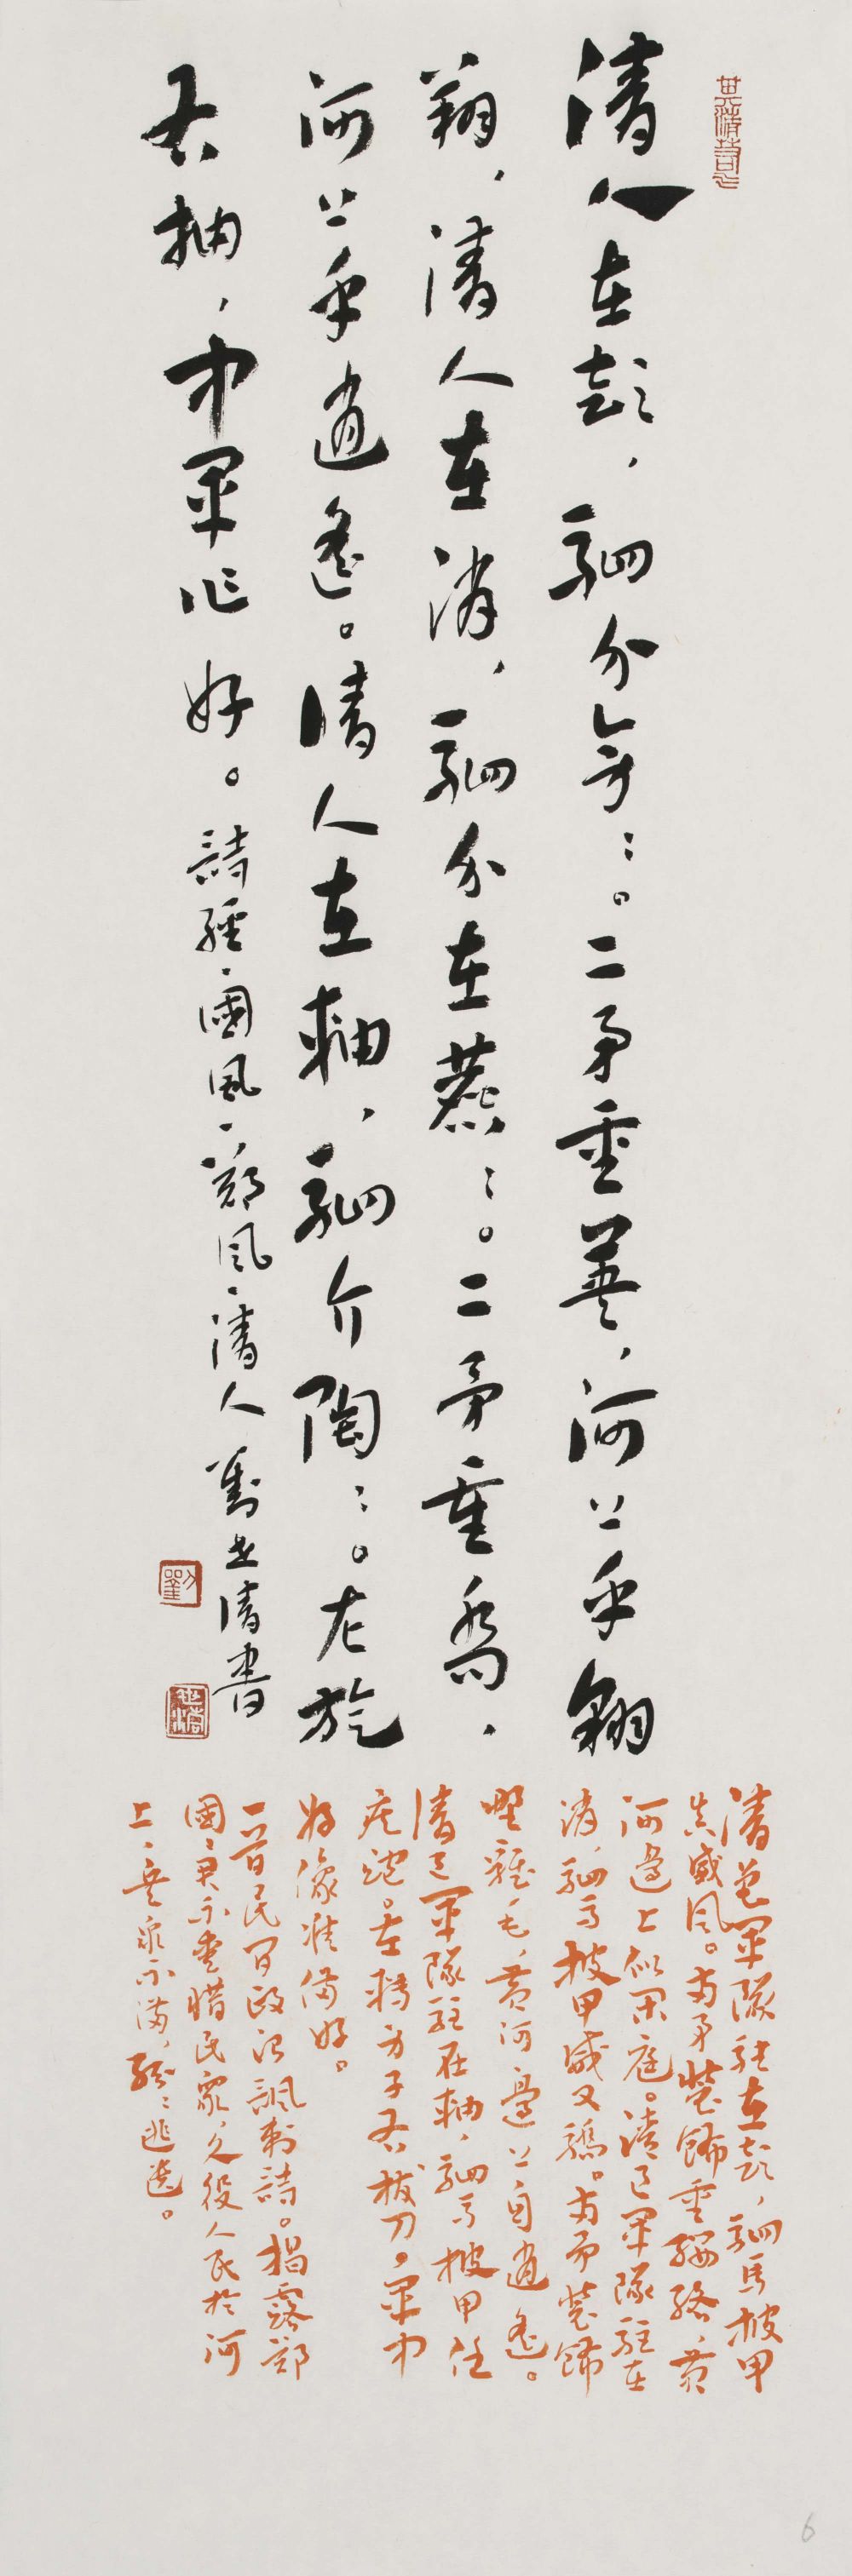 清人在彭，駟介旁：。二矛重英，河上乎翱
翔，清人在消，駟介在麃：。二矛重喬，
河上乎逍遙。清人在軸，駟介陶：。左旋
右抽，中軍作好。詩經·國風·鄭風·清人 劉世清書
劉
清邑軍隊駐在彭，駟馬披甲
真威风。两矛裝飾重纓絡，黃
河邊上似闲庭。清邑軍隊駐在
消，駟馬披甲威又驕。两矛裝飾
野雞毛，黃河邊上自逍遙。
清邑軍隊駐在軸，駟馬披甲任
疾跑。左轉身子右拔刀，軍中
好像准備好。
一首民间政治諷刺詩。揭露鄭
國國君不愛惜民衆，久役人民於河
上，兵衆不满，紛：逃逸。
6